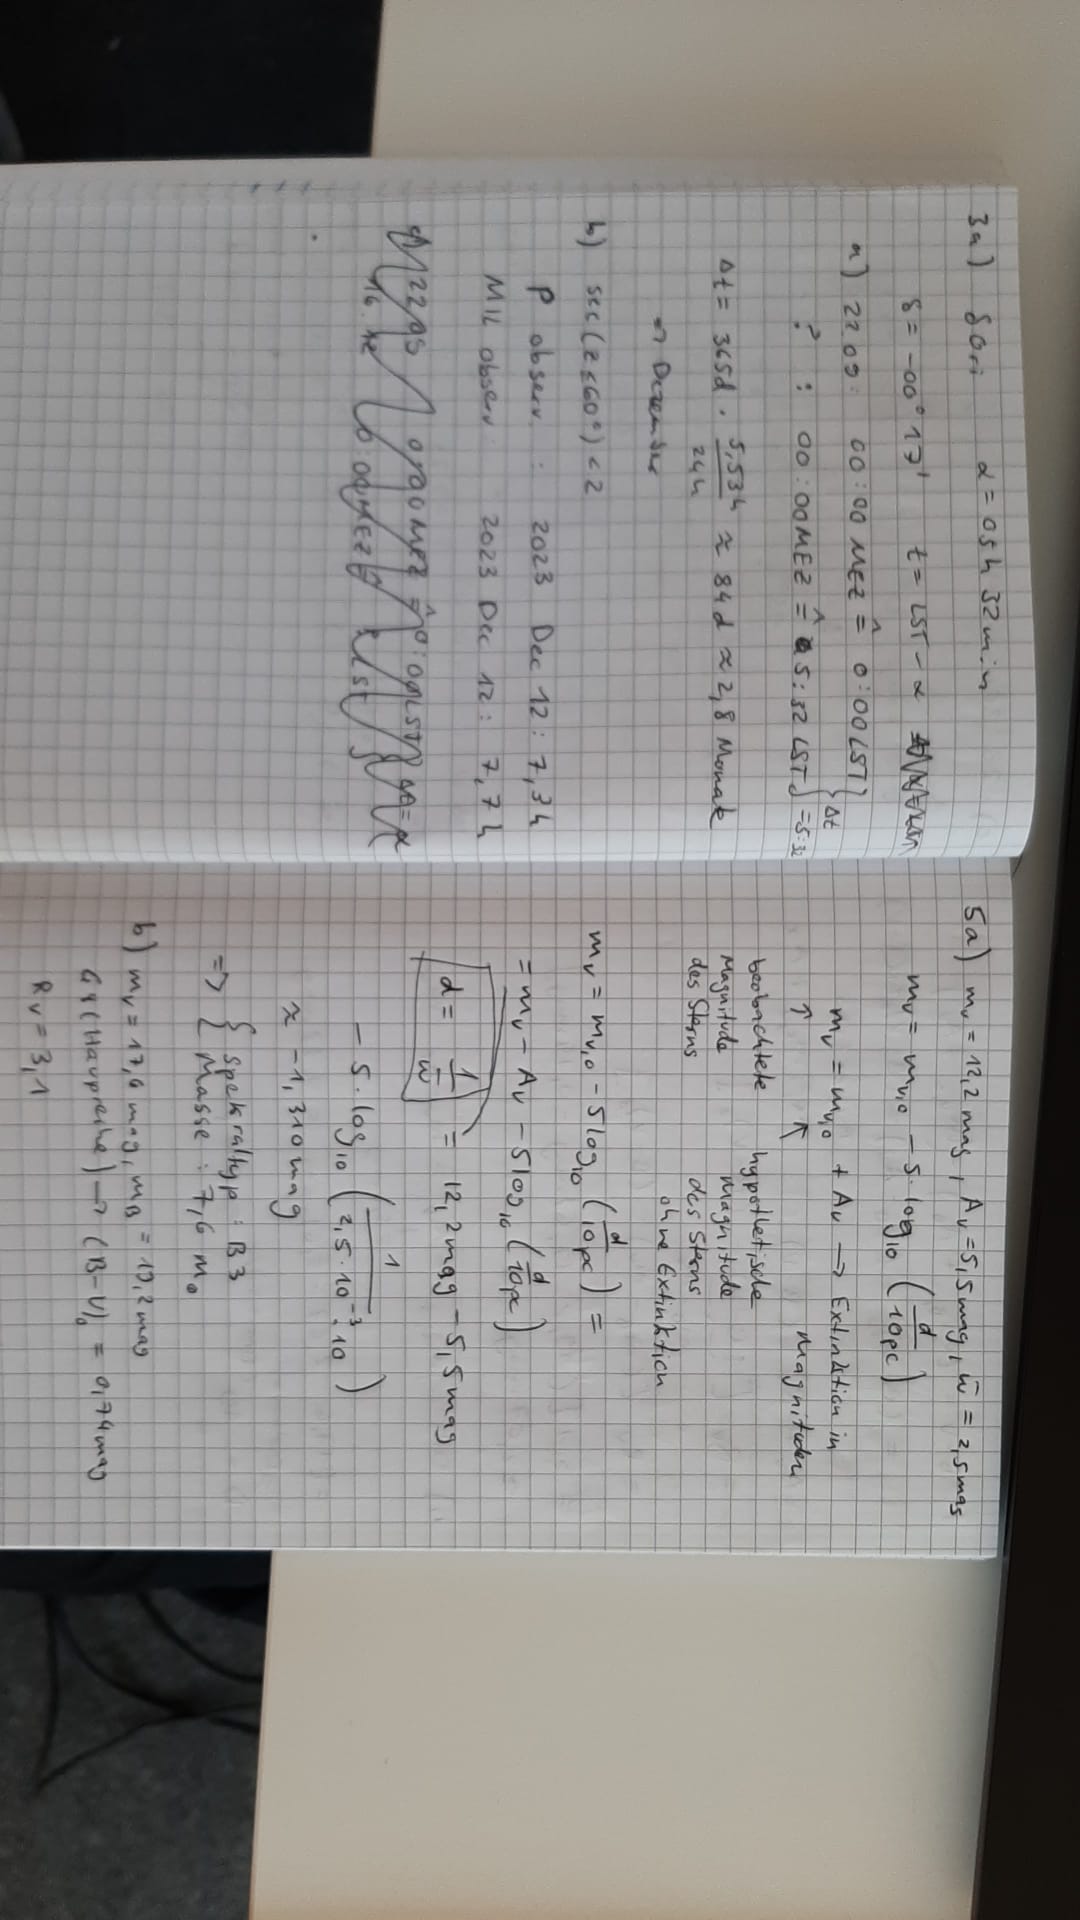 3a) δ Ori α = 05h 32min
δ = -00° 17' t = LST - α
a) 22.09. 00:00 MEZ ≙ 0:00 LST
Δt
? : 00:00 MEZ ≙ 5:32 LST = 5:32
Δt = 365d · 5,53h / 24h ≈ 84d ≈ 2,8 Monate
⇒ Dezember
b) sec(z≤60°) < 2
P observ. : 2023 Dec 12: 7,3h
MIL observ 2023 Dec 12: 7,7h
22.09 0:00 MEZ ≙ 0:00 LST
5a) m_V = 12,2 mag, A_V = 5,5 mag, ω̄ = 2,5 mas
m_V = m_V,0 - 5 · log₁₀ (d / 10pc)
m_V = m_V,0 + A_V → Extinktion in
Magnituden
↑ ↖
beobachtete hypothetische
Magnitude Magnitude
des Sterns des Sterns
ohne Extinktion
m_V = m_V,0 - 5 log₁₀ (d / 10pc) =
= m_V - A_V - 5 log₁₀ (d / 10pc)
d = 1 / ω̄ = 12,2 mag - 5,5 mag
- 5 · log₁₀ (1 / 2,5 · 10⁻³ · 10)
≈ -1,310 mag
⇒ { Spekraltyp : B3
Masse : 7,6 m⊙
b) m_V = 17,6 mag, m_B = 19,2 mag
G8 (Haupreihe) → (B-V)₀ = 0,74 mag
R_V = 3,1